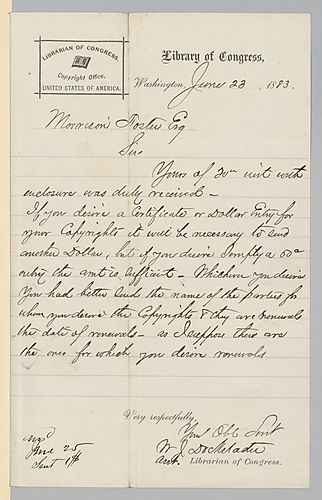 LIBRARIAN OF CONGRESS.
Copyright Office.
UNITED STATES OF AMERICA.
Library of Congress,
Washington, June 23, 1883.
Morrison Foster Esq
Sir
Yours of 20th inst with
enclosure was duly received -
If you desire a Certificate or Dollar Entry for
your Copyrights it will be necessary to send
another Dollar, but if you desire simply a 50c
entry the amt is sufficient - Whichever you desire
You had better send the name of the Parties for
whom you desire the Copyrights & they are renewals
the date of renewals - as I suppose these are
the ones for which you desire renewals
Very respectfully,
Your Obt Servt
Librarian of Congress.
June 25
Sent